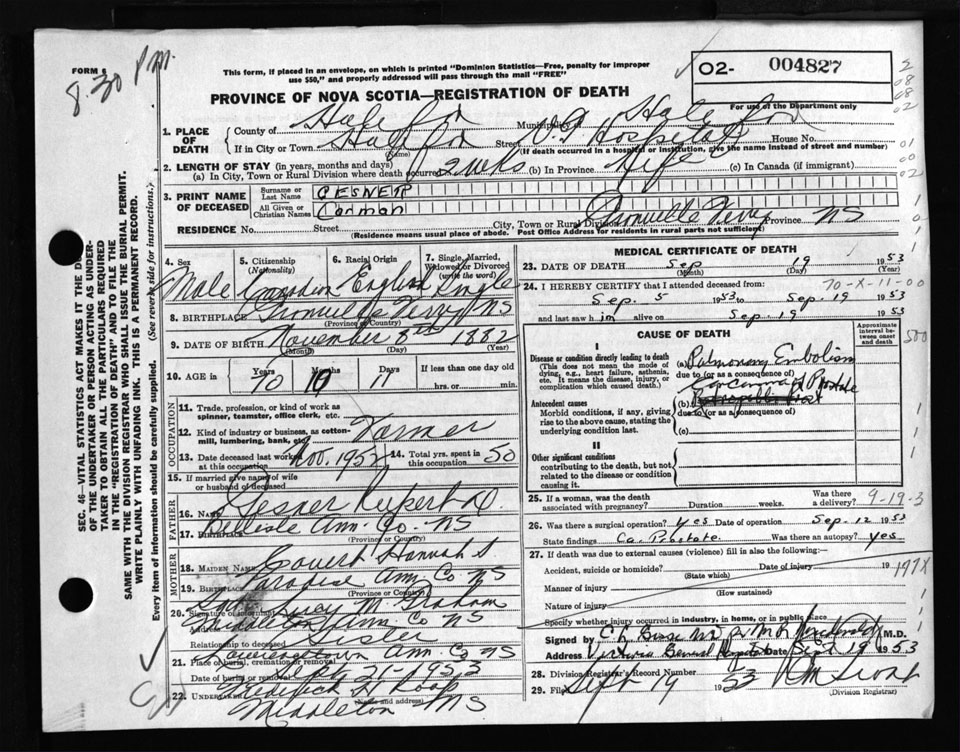 FORM 6
8.30 P.M.
This form, if placed in an envelope, on which is printed "Dominion Statistics—Free, penalty for improper
use $50," and properly addressed will pass through the mail "FREE"
O2- 004827
For use of the Department only
PROVINCE OF NOVA SCOTIA—REGISTRATION OF DEATH
1. PLACE OF DEATH
County of Halifax Municipality Halifax
If in City or Town Halifax Street V.G. Hospital House No.
(Name) (If death occurred in a hospital or institution, give the name instead of street and number)
2. LENGTH OF STAY (in years, months and days)
(a) In City, Town or Rural Division where death occurred 2 wks (b) In Province Life (c) In Canada (if immigrant)
3. PRINT NAME OF DECEASED
Surname or Last Name GESNER
All Given or Christian Names Carman
RESIDENCE No. Street City, Town or Rural Division Granville Ferry Province NS
(Residence means usual place of abode. Post Office Address for residents in rural parts not sufficient)
SEC. 46—VITAL STATISTICS ACT MAKES IT THE DU
OF THE UNDERTAKER OR PERSON ACTING AS UNDER-
TAKER TO OBTAIN ALL THE PARTICULARS REQUIRED
IN THE "REGISTRATION OF DEATH" AND TO FILE THE
SAME WITH THE DIVISION REGISTRAR WHO SHALL ISSUE THE BURIAL PERMIT.
WRITE PLAINLY WITH UNFADING INK. THIS IS A PERMANENT RECORD.
Every item of information should be carefully supplied. (See reverse side for instructions.)
4. Sex Male
5. Citizenship (Nationality) Canadian
6. Racial Origin English
7. Single, Married, Widowed or Divorced (write the word) Single
8. BIRTHPLACE Granville Ferry NS
(Province or Country)
9. DATE OF BIRTH November 8th 1882
(Month) (Day) (Year)
10. AGE in Years 70 Months 10 Days 11 If less than one day old hrs. or min.
OCCUPATION
11. Trade, profession, or kind of work as spinner, teamster, office clerk, etc.
12. Kind of industry or business, as cotton-mill, lumbering, bank, etc. Farmer
13. Date deceased last worked at this occupation Nov. 1952
14. Total yrs. spent in this occupation 50
15. If married give name of wife or husband of deceased
FATHER
16. Name Gesner Rupert D.
17. Birthplace Bellisle Ann. Co. NS
(Province or Country)
MOTHER
18. MAIDEN NAME Covert Hannah S
19. BIRTHPLACE Paradise Ann. Co NS
(Province or Country)
20. Signature of informant Lucy M. Graham
Address Middleton Ann. Co NS
Relationship to deceased Sister
21. Place of burial, cremation or removal Lawrencetown Ann. Co NS
Date of burial or removal Sept. 21-1953
22. Undertaker Frederick H Roop
(Name and address)
Middleton NS
MEDICAL CERTIFICATE OF DEATH
23. DATE OF DEATH Sep 19 1953
(Month) (Day) (Year)
24. I HEREBY CERTIFY that I attended deceased from:
70-X-11-00
Sep. 5 1953 to Sep. 19 1953
and last saw him alive on Sep. 19 1953
CAUSE OF DEATH
Approximate interval between onset and death
I
Disease or condition directly leading to death
(This does not mean the mode of dying, e.g., heart failure, asthenia, etc. It means the disease, injury, or complication which caused death.)
(a) Pulmonary Embolism
due to (or as a consequence of)
Carcinoma of Prostate
Antecedent causes
Morbid conditions, if any, giving rise to the above cause, stating the underlying condition last.
(b)
due to (or as a consequence of)
(c)
II
Other significant conditions
contributing to the death, but not related to the disease or condition causing it.
25. If a woman, was the death associated with pregnancy? Duration weeks. Was there a delivery?
9-19-3
26. Was there a surgical operation? Yes Date of operation Sep. 12 1953
State findings Ca. Prostate Was there an autopsy? Yes
27. If death was due to external causes (violence) fill in also the following:—
Accident, suicide or homicide? Date of injury 19
(State which)
177X
Manner of injury
(How sustained)
Nature of injury
Specify whether injury occurred in industry, in home, or in public place
Signed by M.D.
Address Victoria General Hospital Date Sept 19 1953
28. Division Registrar's Record Number
29. Filed Sept 19 1953
(Division Registrar)